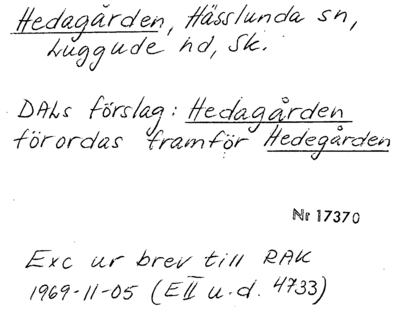 Hedagården, Hässlunda sn,
Luggude hd, Sk.
DALs förslag: Hedagården
förordas framför Hedegården
Nr 17370
Exc ur brev till RAK
1969-11-05 (EII u.d. 4733)